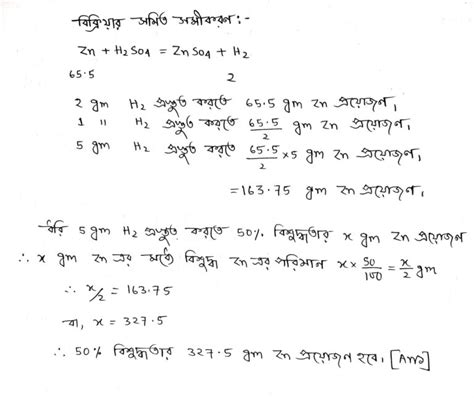 বিক্রিয়ার সমিত সমীকরণ:-
Zn + H2SO4 = ZnSO4 + H2
65.5 2
2 gm H2 প্রস্তুত করতে 65.5 gm Zn প্রয়োজন,
1 " H2 প্রস্তুত করতে 65.5/2 gm Zn প্রয়োজন,
5 gm H2 প্রস্তুত করতে 65.5/2 ×5 gm Zn প্রয়োজন,
=163.75 gm Zn প্রয়োজন,
ধরি 5 gm H2 প্রস্তুত করতে 50% বিশুদ্ধতার x gm Zn প্রয়োজন
∴ x gm Zn এর মধ্যে বিশুদ্ধ Zn এর পরিমান x × 50/100 = x/2 gm
∴ x/2 = 163.75
বা, x = 327.5
∴ 50% বিশুদ্ধতার 327.5 gm Zn প্রয়োজন হবে। [Ans]